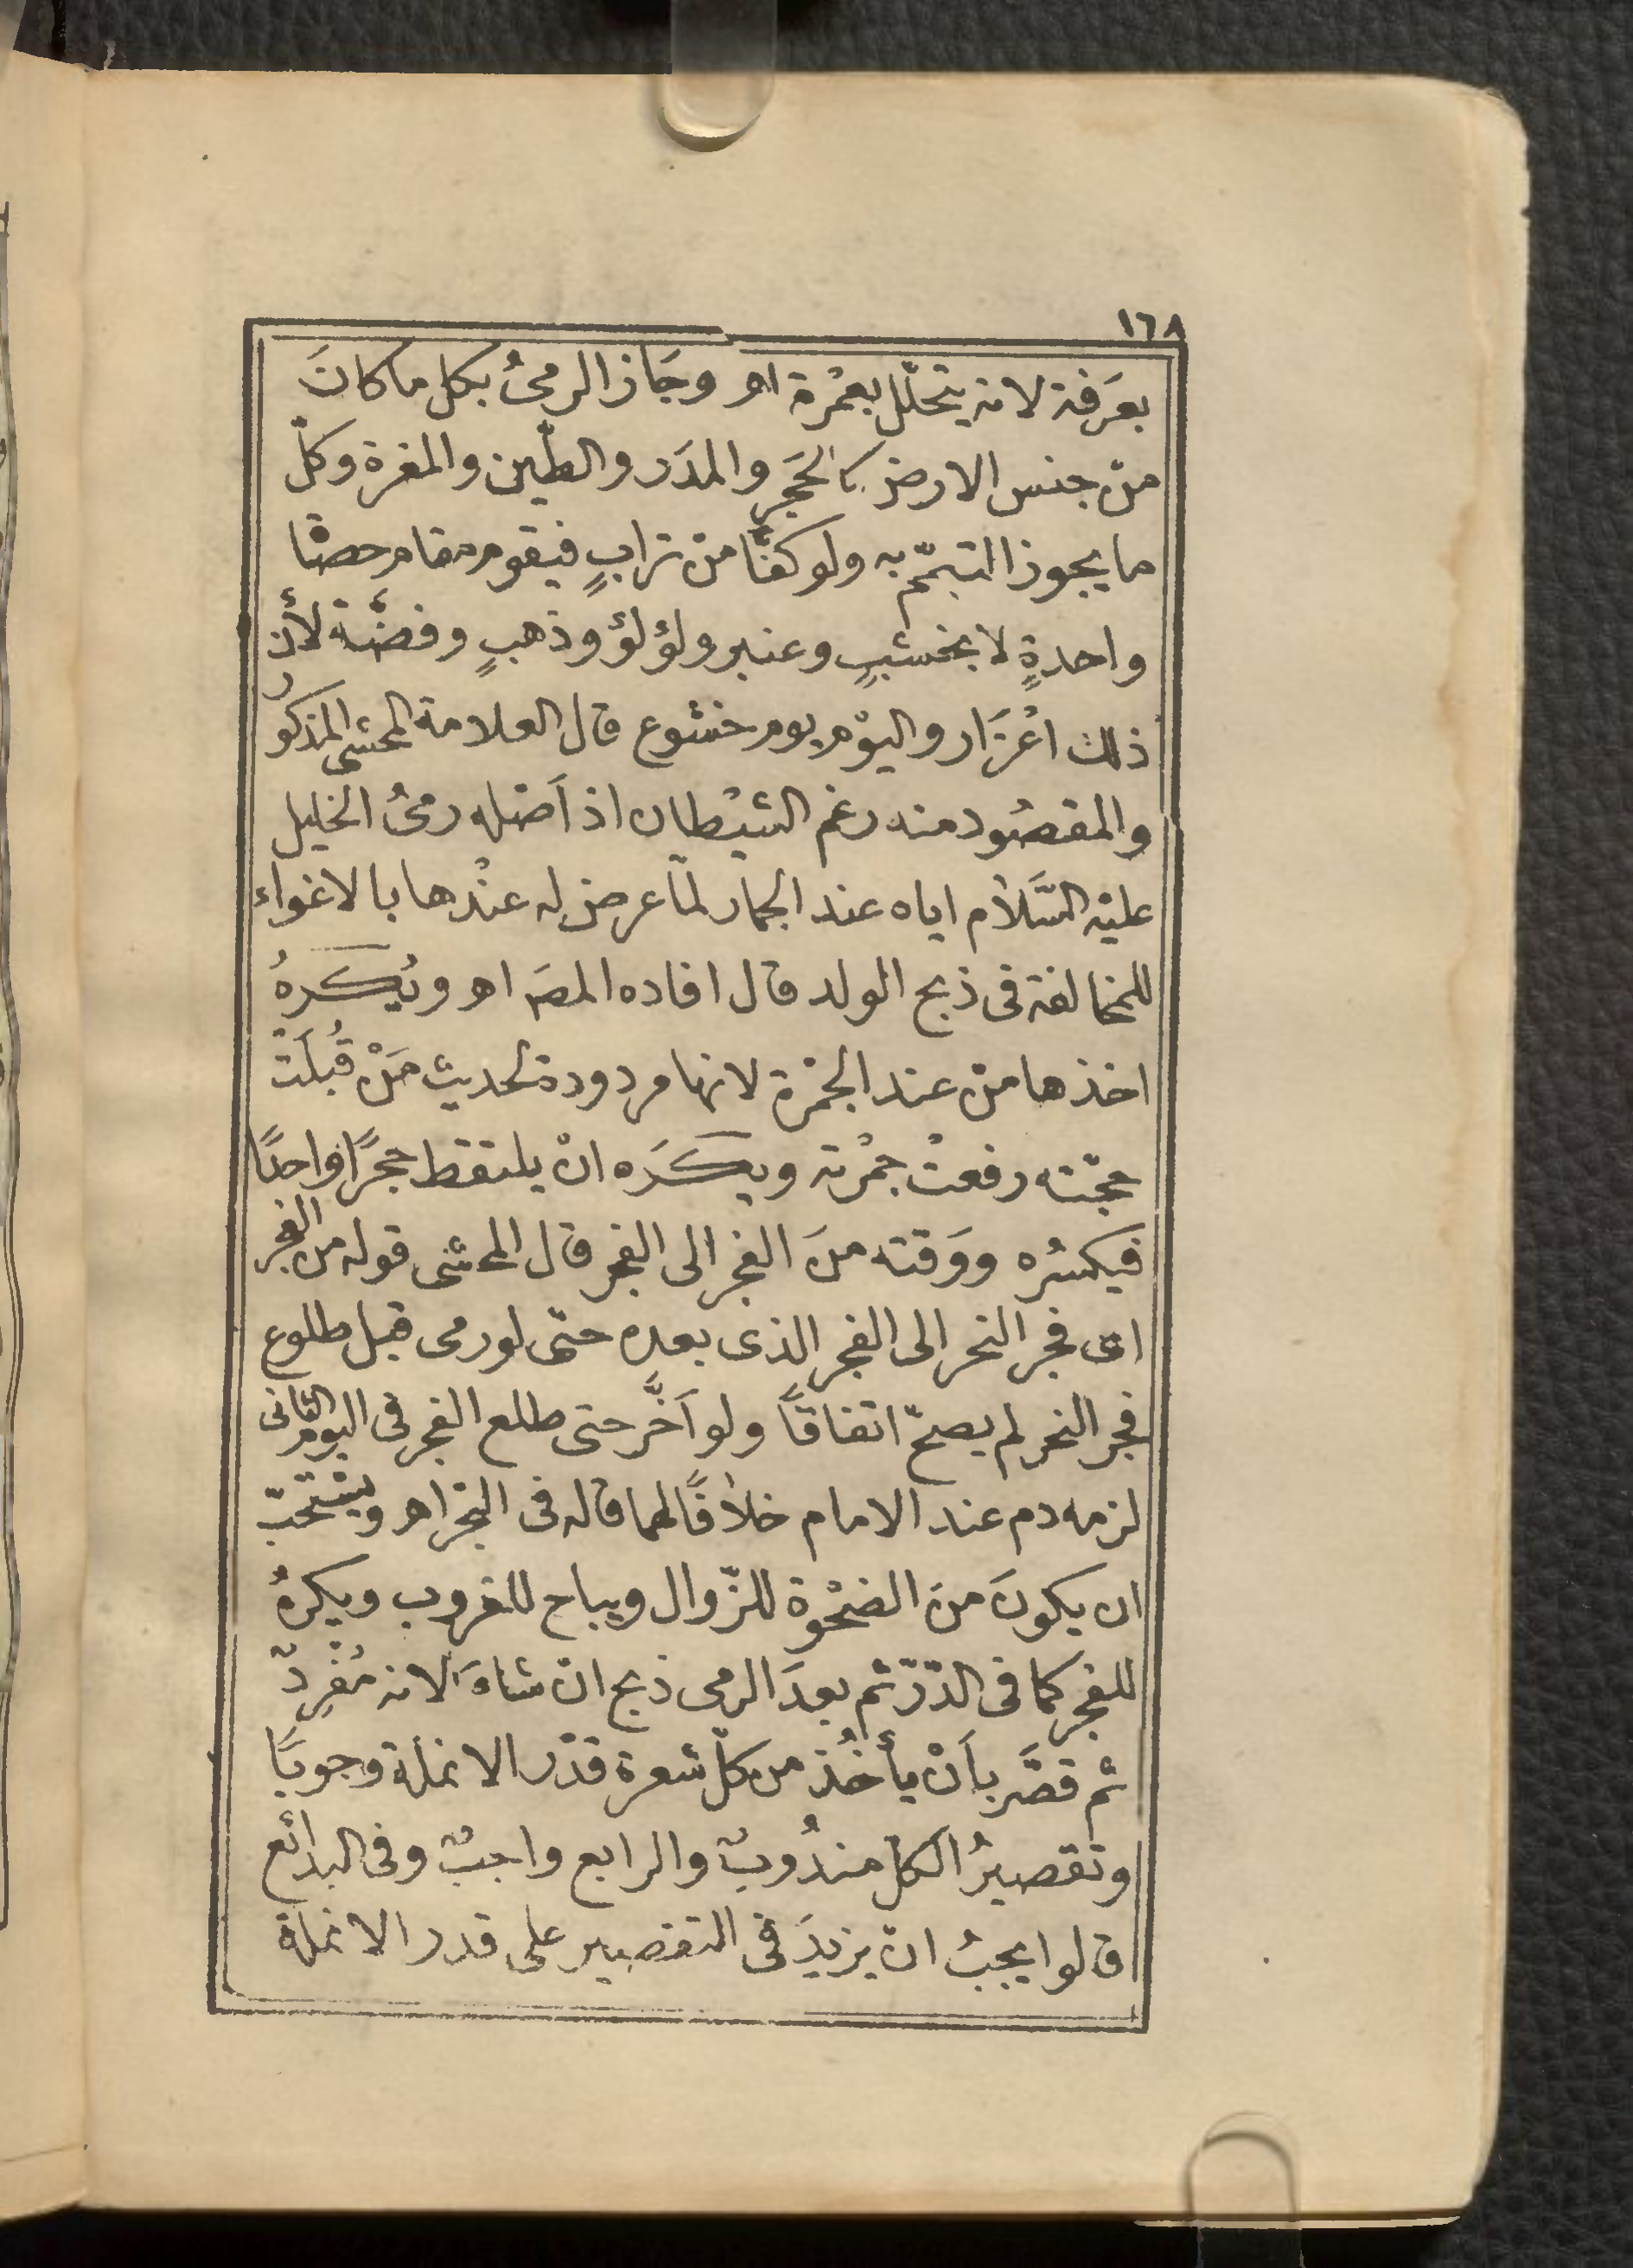 ١٦٨
بعَرفة لانه يتحلّل بعمْرة اهـ وجَاز الرمىُ بكل ما كانَ
منْ جنس الارض كالحَجرِ والمدَر والطّين والمغرة وكلّ
ما يجوز التيمّم به ولو كفًّا منْ ترابٍ فيقوم مقام حصاة
واحدةٍ لا بخشبٍ وعنبر ولؤلؤ وذهبٍ وفضّة لأنّ
ذلك اعْزَار واليوْم يوم خشوع قال العلامة المحشى المذكورُ
والمقصُود منه رغم الشيْطان اذ اَصْله رمىُ الخليل
عليْه السَّلَام اياه عند الجمار لمّا عرض له عنْدها بالاغواء
للمخالفة فى ذبح الولد قال افاده المصَـ اهـ ويُكَرهُ
اخذها منْ عند الجمْرة لانها مردودة لحديث مَنْ قُبلَتْ
حجّته رفعتْ جمْرته ويكَرَه انْ يلتقط حجرًا واحدًا
فيكسُره ووَقته منَ الفجر الى الفجر قال المحشى قوله من الفجر
اى فجر النحر الى الفجر الذى بعده حتّى لو رمى قبل طلوع
فجر النحر لم يصحّ اتفاقًا ولو اَخَّر حتى طلع الفجر فى اليوم الثانى
لزمه دم عند الامام خلافًا لهما قاله فى البحر اهـ ويسْتحبّ
ان يكونَ منَ الضحْوة للزّوال ويباح للغروب ويكرهُ
للفجر كما فى الدّرّ ثم بعدَ الرمى ذبح انْ شاءَ لانه مُفْرِدٌ
ثم قصَّر باَنْ يأخُذ من كلّ شعرة قدْر الانملة وجوبًا
وتقصيرُ الكل مندُوبٌ والرابع واجبٌ وفى البدائع
قالوا يجبُ انْ يزيدَ فى التقصير على قدر الانملة